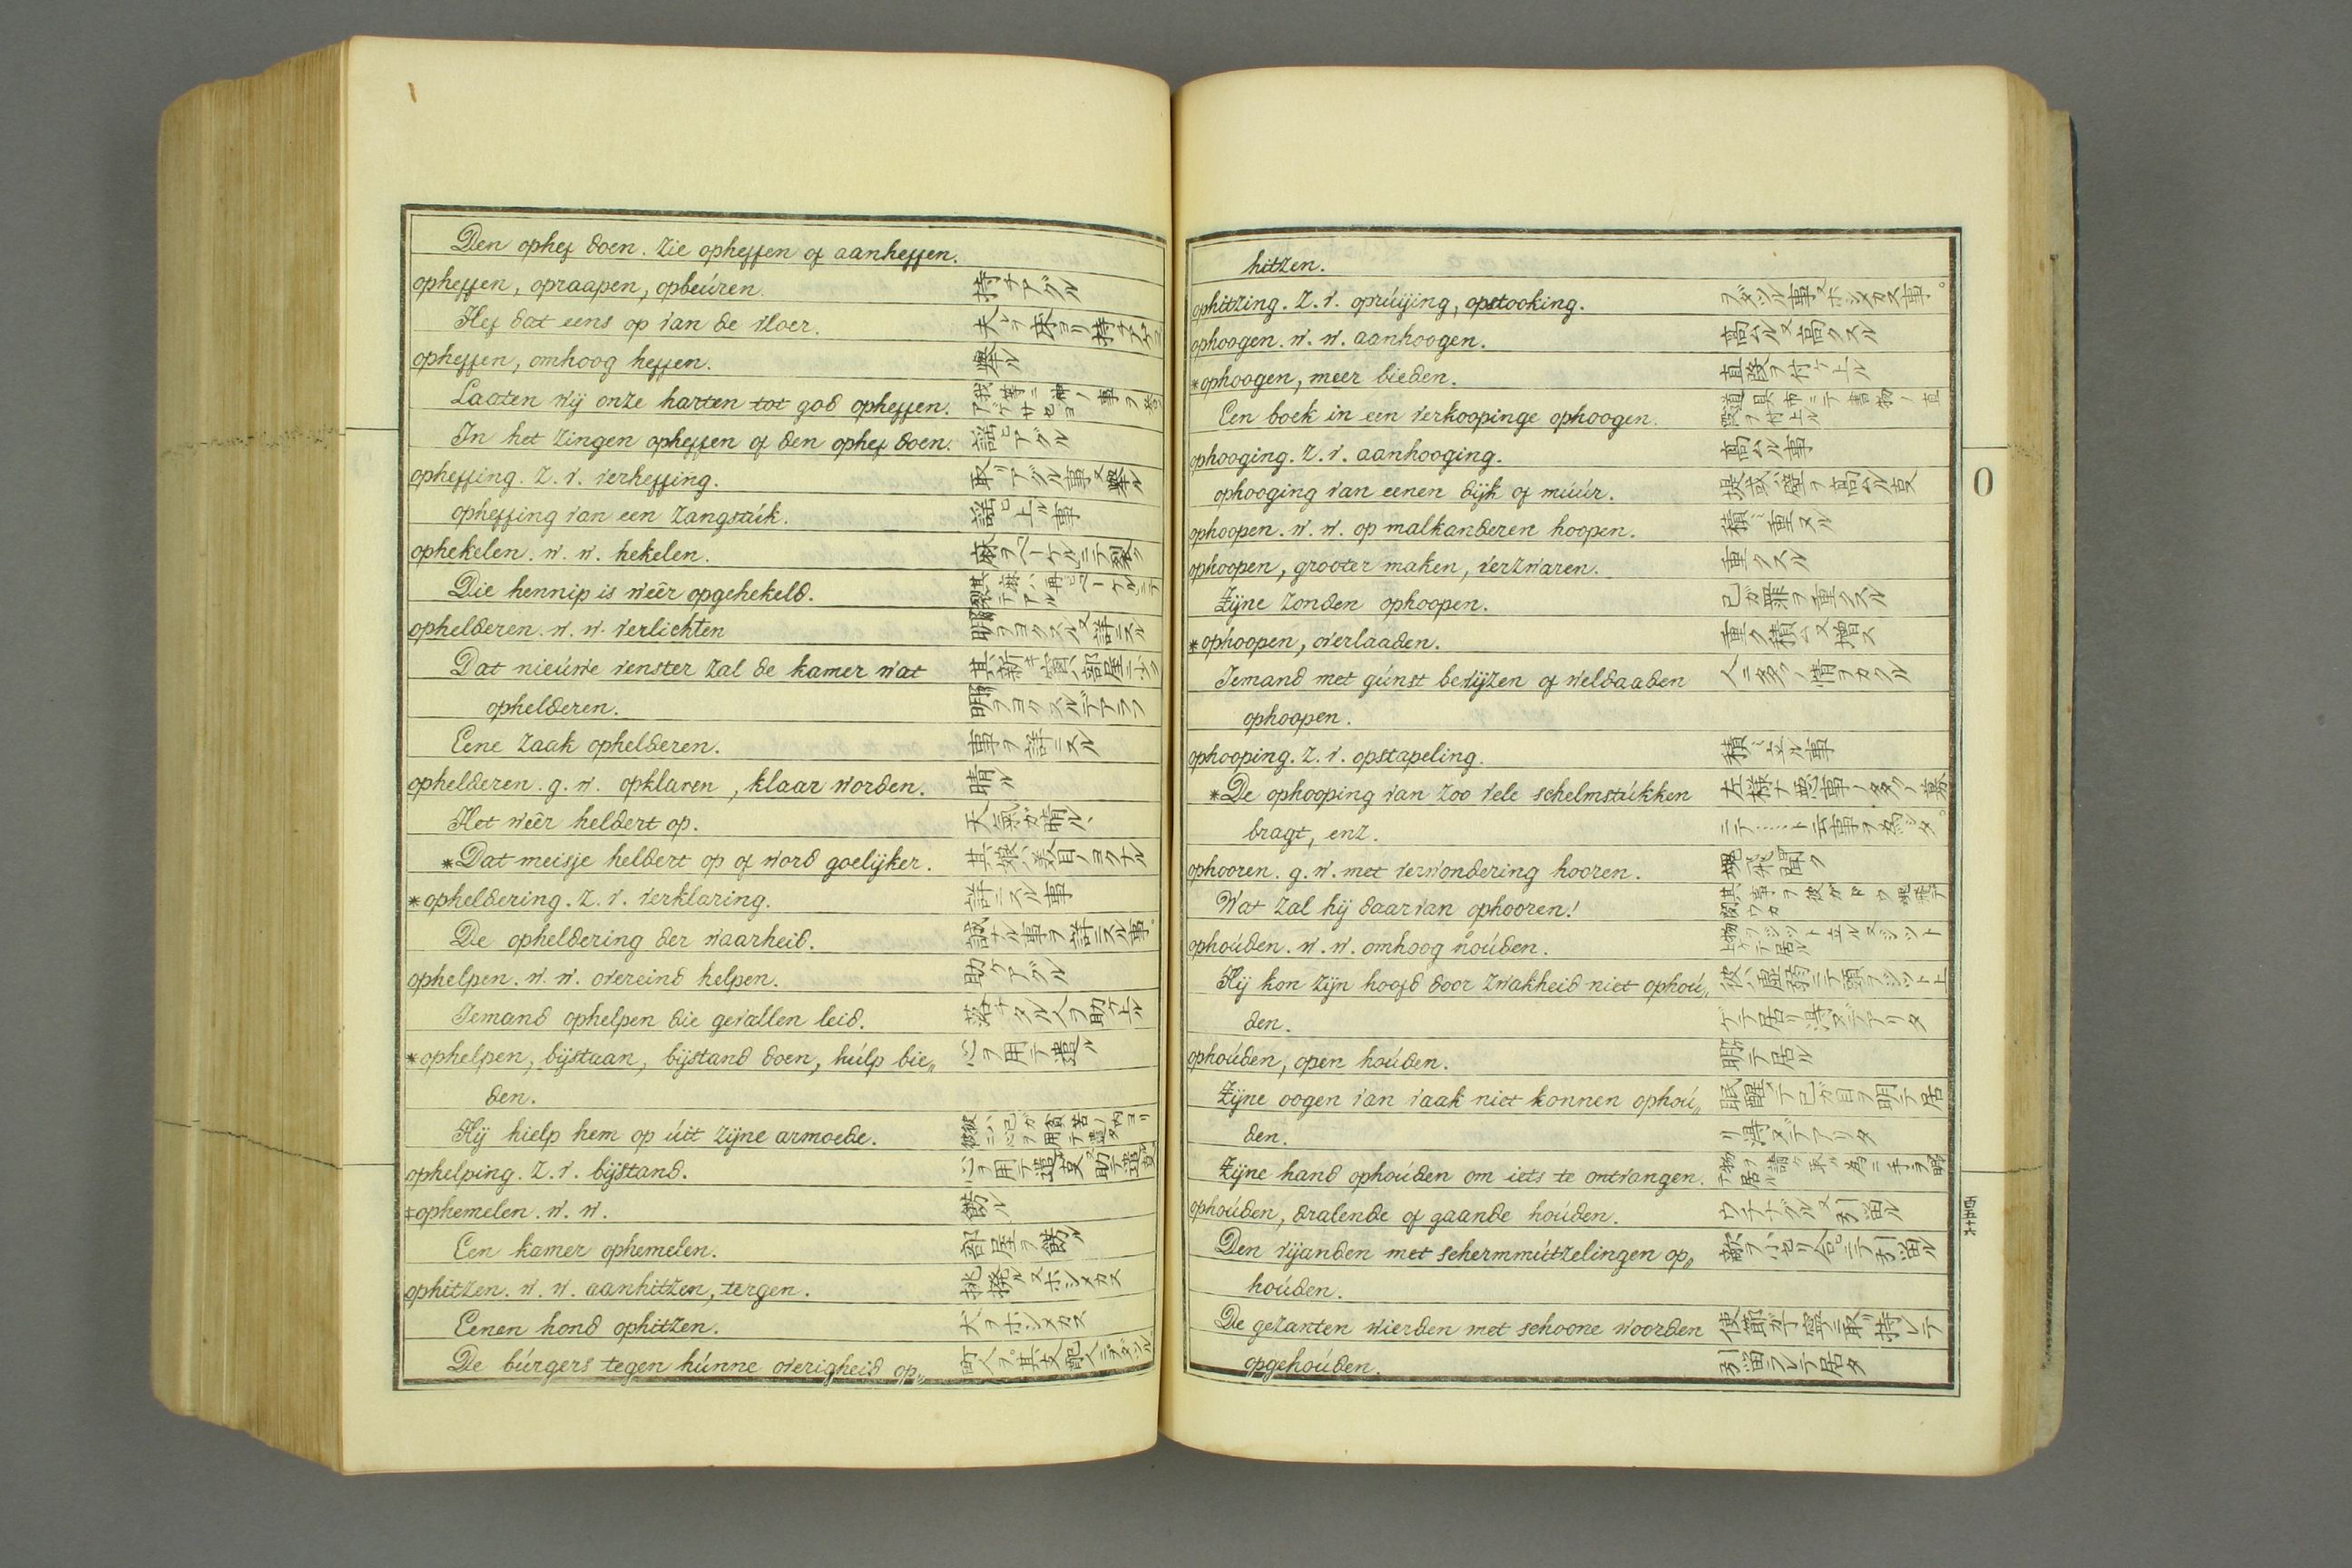 Den ophef doen. Zie opheffen of aanheffen.
opheffen, opraapen, opbeúren. 持チアグル
Hef dat eens op van de vloer. 夫レヲ床ヨリ持チアゲ
opheffen, omhoog heffen. 擧ル
Laaten wij onze harten tot god opheffen.
In het zingen opheffen of den ophef doen. 謡ヒアグル
opheffing. z. v. verheffing. 取リアグル事又擧ル
opheffing van een zangstúk. 謡ヒ上ル事
ophekelen. w. w. hekelen.
Die hennip is wêêr opgehekeld.
ophelderen. w. w. verlichten 明ヲヨクスル又詳ニスル
Dat nieúwe venster zal de kamer wat 其新キ窗ハ部屋ニ少ク
ophelderen. 明ヲヨクスルデアラフ
Eene zaak ophelderen. 事ヲ詳ニスル
ophelderen. g. w. opklaren, klaar worden. 晴ル
Het wêêr heldert op. 天氣ガ晴ル
*Dat meisje heldert op of word goelijker. 其娘ハ美目ノヨクナル
*opheldering. z. v. verklaring. 詳ニスル事
De opheldering der waarheid. 誠ナル事ヲ詳ニスル事
ophelpen. w. w. overeind helpen. 助ケアグル
Iemand ophelpen die gevallen leid. 落チタル人ヲ助ケ上ル
*ophelpen, bijstaan, bijstand doen, húlp bie„ 心ヲ用テ遣ル
den.
Hij hielp hem op úit zijne armoede.
ophelping. z. v. bijstand.
‡ophemelen. w. w. 餝ル
Een kamer ophemelen. 部屋ヲ餝ル
ophitzen. w. w. aanhitzen, tergen. 挑撥ル又ホシメカス
Eenen hond ophitzen. 犬ヲホシメカス
De búrgers tegen húnne overigheid op„
hitzen.
ophitzing. z. v. oprúijing, opstooking.
ophoogen. w. w. aanhoogen. 高ムル又高クスル
*ophoogen, meer bieden. 直段ヲ付ケ上ル
Een boek in een verkoopinge ophoogen. 道具市ニテ書物ノ直段ヲ付上ル
ophooging. z. v. aanhooging. 高ムル事
ophooging van eenen dijk of múúr.
ophoopen. w. w. op malkanderen hoopen. 積ミ重ヌル
ophoopen, grooter maken, verzwaren. 重クスル
Zijne zonden ophoopen. 己ガ罪ヲ重クスル
*ophoopen, overlaaden. 重ク積ム又増ス
Iemand met gúnst bewijzen of weldaaden 人ニ多クノ情ヲカクル
ophoopen.
ophooping. z. v. opstapeling. 積ミ立ル事
*De ophooping van zoo vele schelmstúkken 左様ナ悪事ノ多クノ募
bragt, enz.
ophooren. g. w. met verwondering hooren.
Wat zal hij daarvan ophooren!
ophoúden. w. w. omhoog hoúden.
Hij kon zijn hoofd door zwakheid niet ophoú„ 彼ハ虚弱ニテ頭ヲジット上
den. ゲテ居リ得ヌデアリタ
ophoúden, open hoúden. 明ケテ居ル
Zijne oogen van vaak niet konnen ophoú„ 眠醒テ己ガ目ヲ明テ居
den. リ得ヌデアリタ
Zijne hand ophoúden om iets te ontvangen.
ophoúden, dralende of gaande hoúden.
Den vijanden met schermmútzelingen op„ 敵ヲ小セリ合ニテ引留ル
hoúden.
De gezanten wierden met schoone woorden 使節ガ丁寧ニ取持レテ
opgehoúden. 引留ラレテ居タ
O